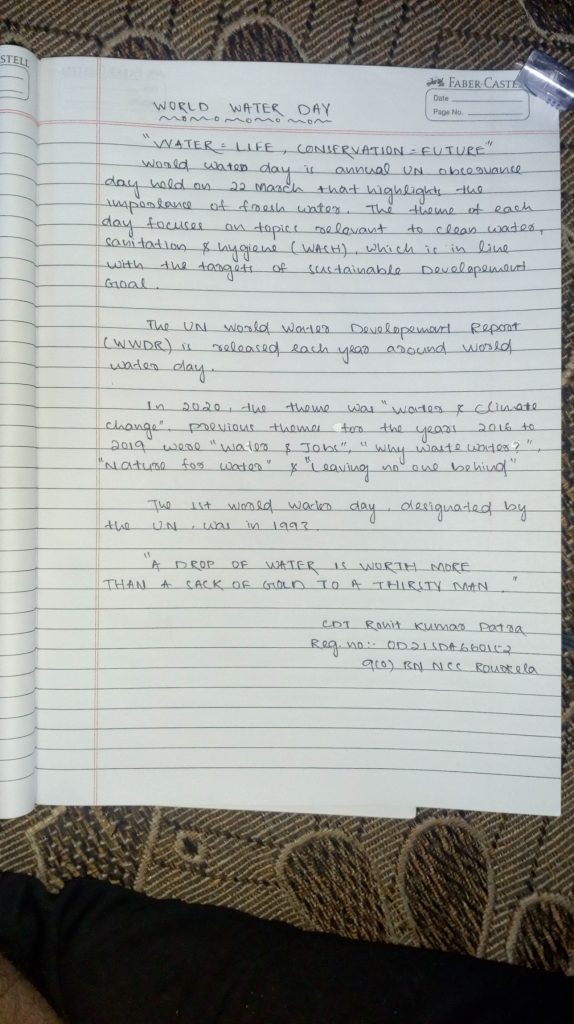 STELL
FABER-CASTE
Date
Page No.
WORLD WATER DAY
"WATER = LIFE, CONSERVATION = FUTURE"
World water day is annual UN observance
day held on 22 March that highlights the
importance of fresh water. The theme of each
day focuses on topics relevant to clean water,
sanitation & hygiene (WASH), which is in line
with the targets of sustainable Developement
Goal.
The UN World Water Developement Report
(WWDR) is released each year around World
water day.
In 2020, the theme was "Water & Climate
change". Previous themes for the years 2016 to
2019 were "Water & Jobs", "Why waste water?",
"Nature for water" & "Leaving no one behind"
The 1st world water day, designated by
the UN, was in 1993.
"A DROP OF WATER IS WORTH MORE
THAN A SACK OF GOLD TO A THIRSTY MAN."
CDT Rohit Kumar Patra
Reg. no:-
9(O) BN NCC Rourkela